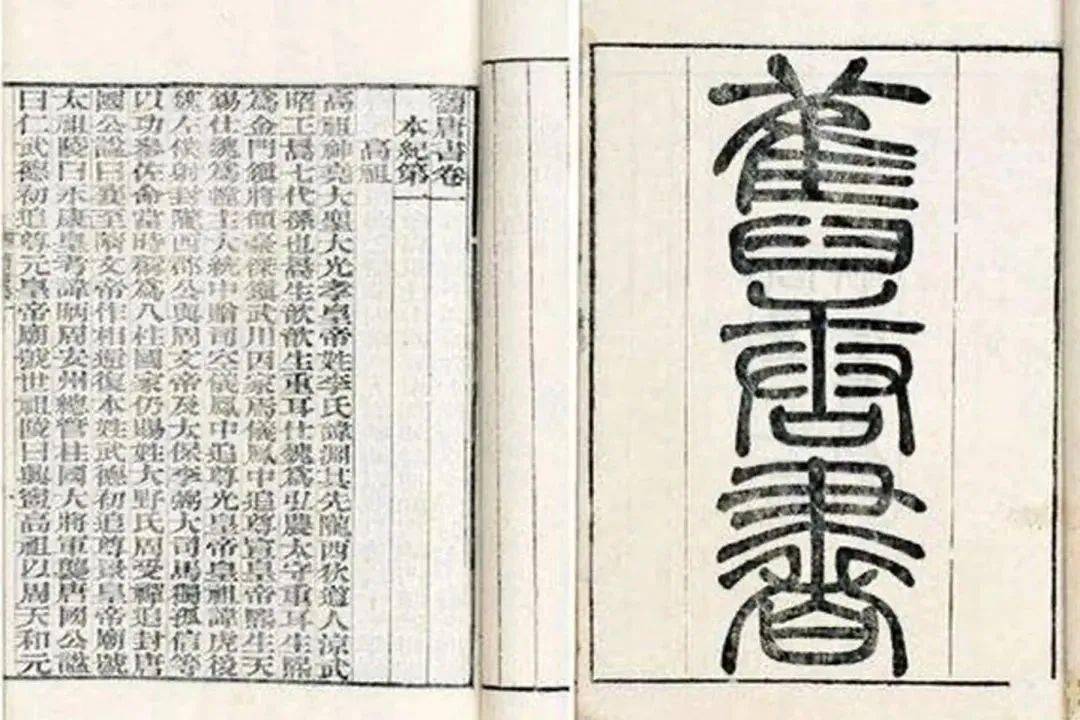 舊唐書
舊唐書卷
本紀第
高祖
高祖神堯大聖大光孝皇帝姓李氏諱淵其先隴西狄道人涼武
昭王暠七代孫也暠生歆歆生重耳仕魏爲弘農太守重耳生熙
爲金門鎮將領豪傑鎮武川因家焉儀鳳中追尊宣皇帝熙生天
錫仕魏爲幢主大統中贈司空儀鳳中追尊光皇帝皇祖諱虎後
魏左僕射封隴西郡公與周文帝及太保李弼大司馬獨孤信等
以功參佐命當時稱爲八柱國家仍賜姓大野氏周受禪追封唐
國公諡曰襄至隋文帝作相還復本姓武德初追尊景皇帝廟號
太祖陵曰永康皇考諱昞周安州總管柱國大將軍襲唐國公諡
曰仁武德初追尊元皇帝廟號世祖陵曰興寧高祖以周天和元